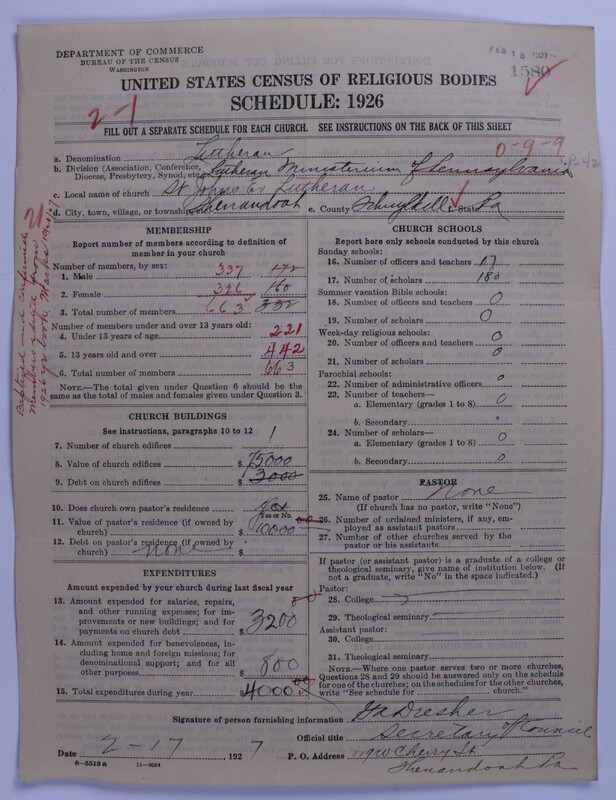 DEPARTMENT OF COMMERCE
BUREAU OF THE CENSUS
WASHINGTON
FEB 18 1927
1580
UNITED STATES CENSUS OF RELIGIOUS BODIES
SCHEDULE: 1926
2-1
FILL OUT A SEPARATE SCHEDULE FOR EACH CHURCH. SEE INSTRUCTIONS ON THE BACK OF THIS SHEET
0-9-9
a. Denomination Lutheran
b. Division (Association, Conference, Diocese, Presbytery, Synod, etc.) Lutheran Ministerium of Pennsylvania
c. Local name of church St Johns Ev Lutheran
d. City, town, village, or township, etc. Shenandoah e. County Schuylkill State Pa
MEMBERSHIP
Report number of members according to definition of
member in your church
Number of members, by sex:
1. Male 337 172
2. Female 326 160
3. Total number of members 663 332
Number of members under and over 13 years old:
4. Under 13 years of age 221
5. 13 years old and over 442
6. Total number of members 663
NOTE.—The total given under Question 6 should be the
same as the total of males and females given under Question 3.
CHURCH BUILDINGS
See instructions, paragraphs 10 to 12
7. Number of church edifices 1
8. Value of church edifices $ 75000
9. Debt on church edifices $ 3000
10. Does church own pastor's residence yes
Yes or No
11. Value of pastor's residence (if owned by
church) $ 10000
12. Debt on pastor's residence (if owned by
church) none $
EXPENDITURES
Amount expended by your church during last fiscal year
13. Amount expended for salaries, repairs,
and other running expenses; for im-
provements or new buildings; and for
payments on church debt $ 3200
14. Amount expended for benevolences,
including home and foreign missions; for
denominational support; and for all
other purposes $ 800
15. Total expenditures during year $ 4000
CHURCH SCHOOLS
Report here only schools conducted by this church
Sunday schools:
16. Number of officers and teachers 17
17. Number of scholars 180
Summer vacation Bible schools:
18. Number of officers and teachers 0
19. Number of scholars 0
Week-day religious schools:
20. Number of officers and teachers 0
21. Number of scholars 0
Parochial schools:
22. Number of administrative officers 0
23. Number of teachers—
a. Elementary (grades 1 to 8) 0
b. Secondary
24. Number of scholars—
a. Elementary (grades 1 to 8) 0
b. Secondary 0
PASTOR
25. Name of pastor None
(If church has no pastor, write "None")
26. Number of ordained ministers, if any, em-
ployed as assistant pastors
27. Number of other churches served by the
pastor or his assistants
If pastor (or assistant pastor) is a graduate of a college or
theological seminary, give name of institution below. (If
not a graduate, write "No" in the space indicated.)
Pastor:
28. College
29. Theological seminary
Assistant pastor:
30. College
31. Theological seminary
NOTE.—Where one pastor serves two or more churches,
Questions 28 and 29 should be answered only on the schedule
for one of the churches; on the schedules for the other churches,
write "See schedule for church."
Signature of person furnishing information Dresher
Official title Secretary of Council
Date 2-17 1927 P. O. Address Cherry St
Shenandoah Pa
8-5518a 11-9054